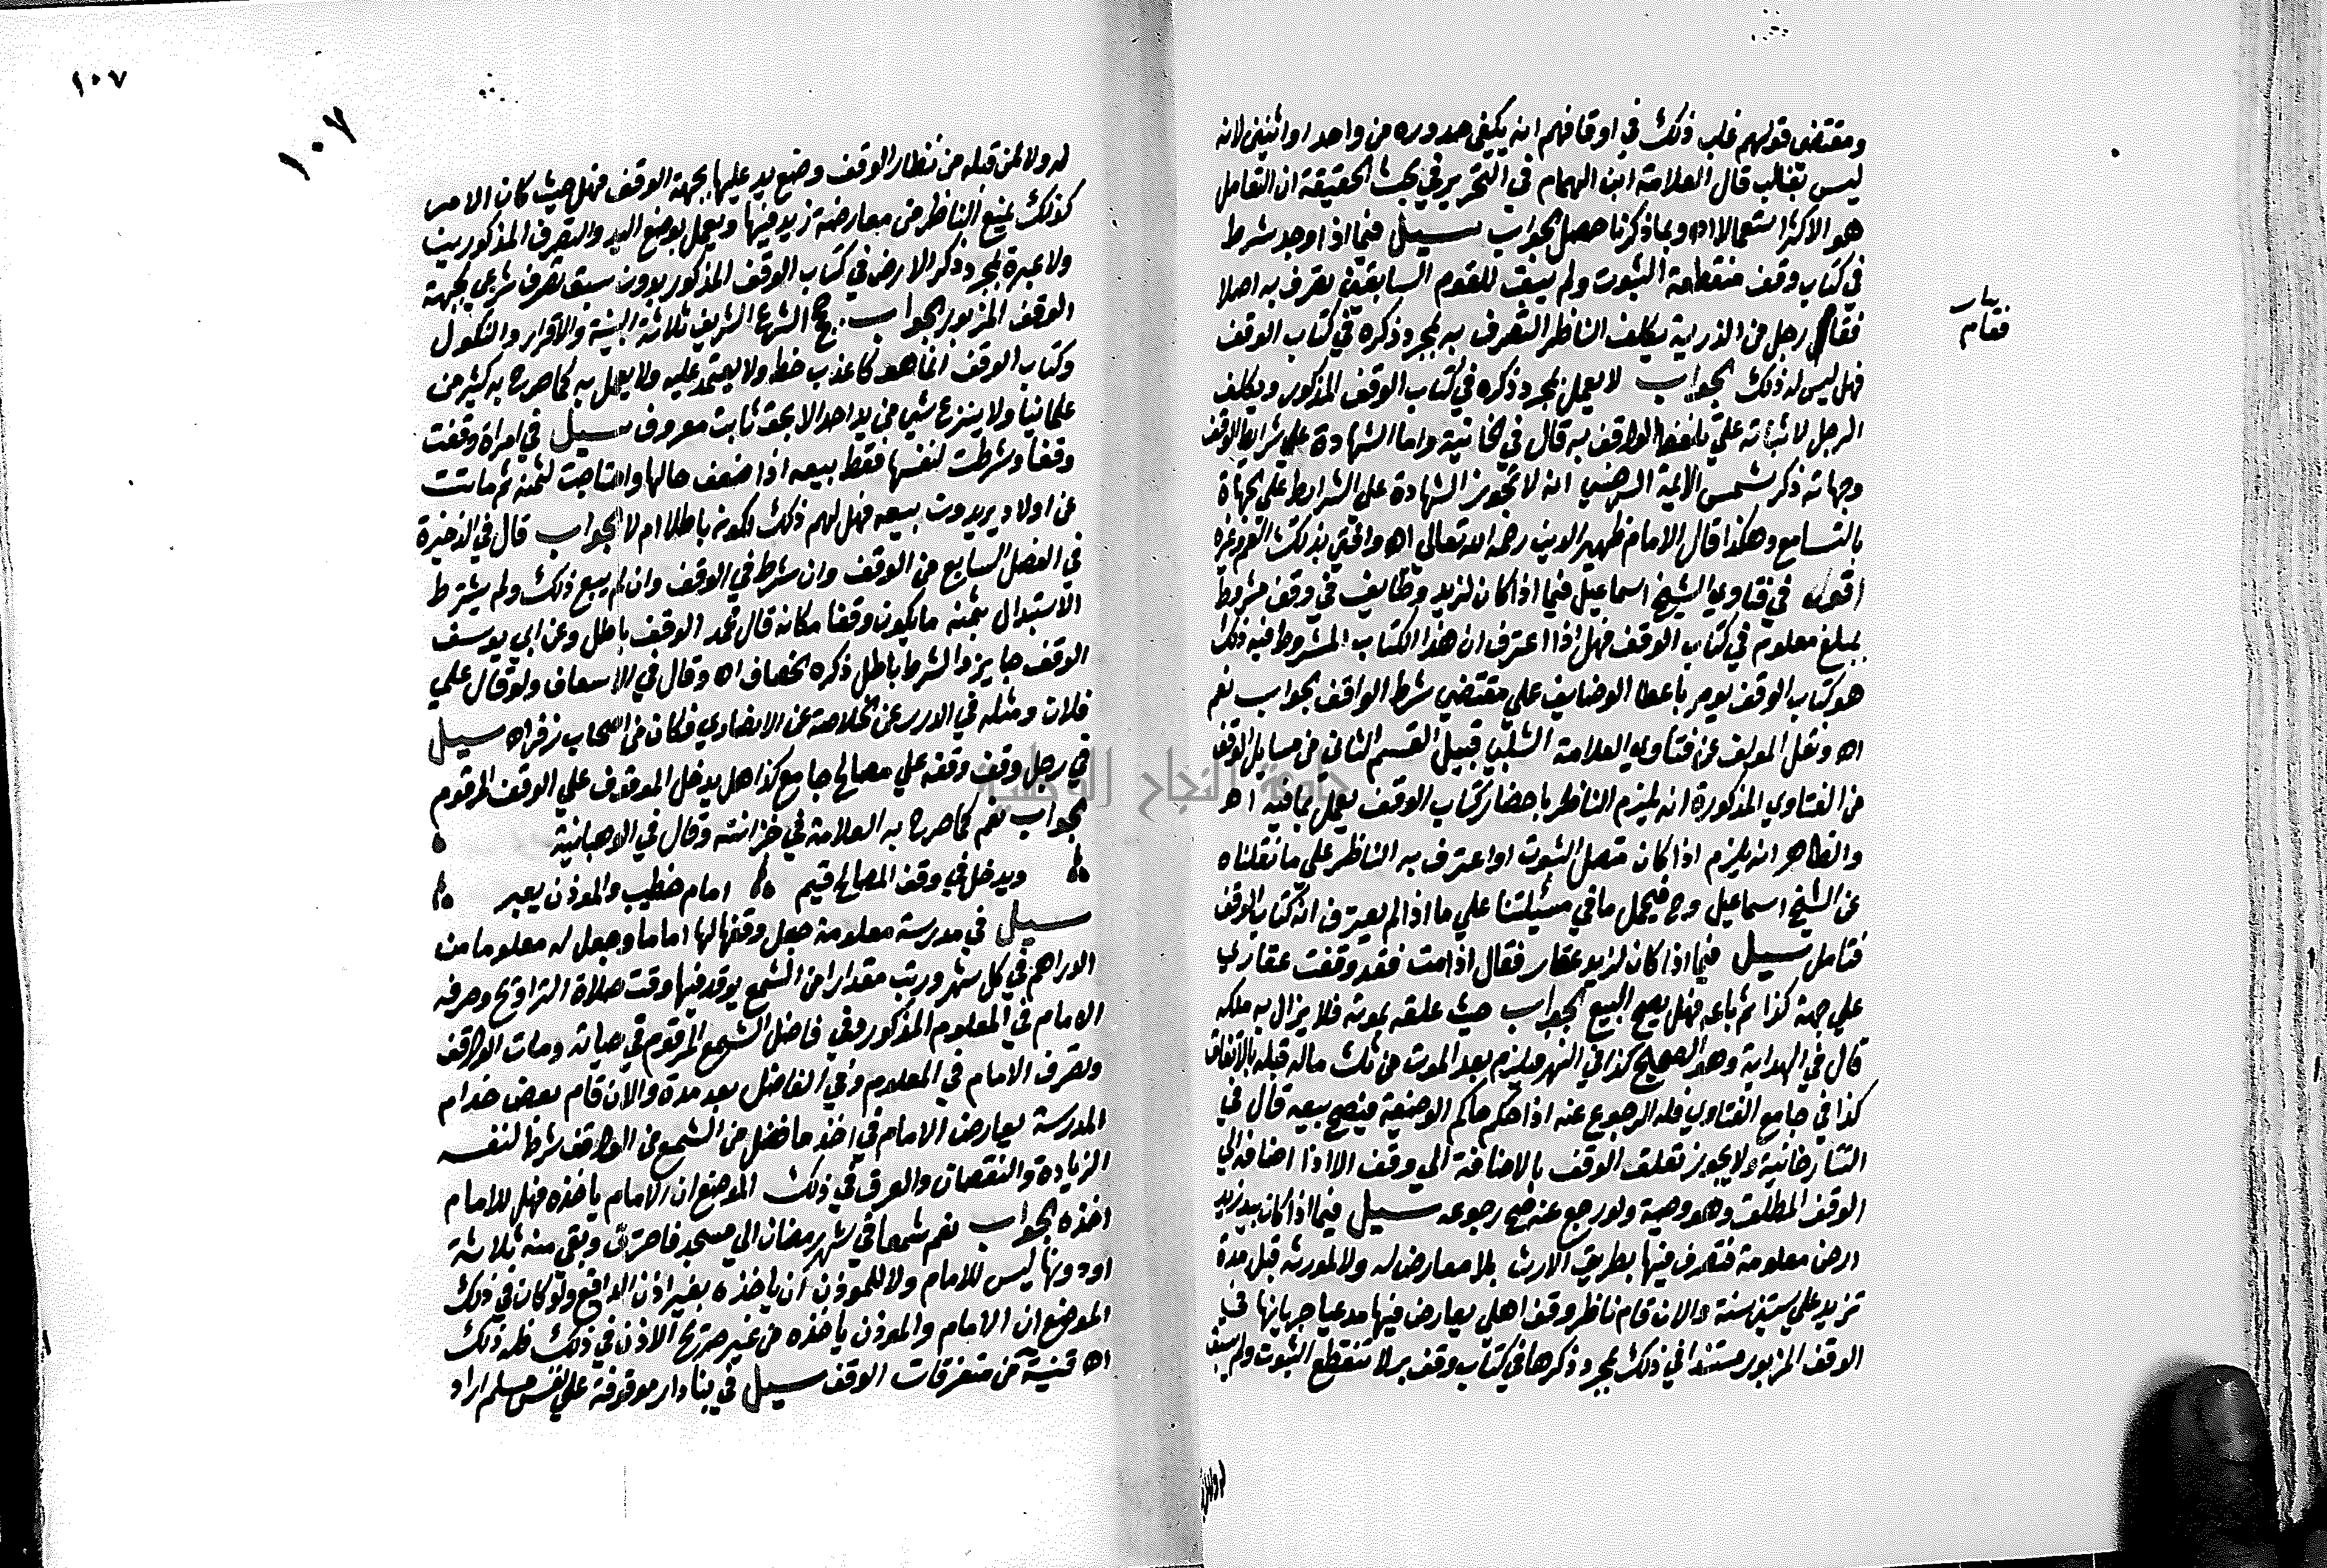 ومقتضى قولهم غلب ذلك في اوقافهم انه يكفي صدوره من واحد او اثنين لانه
ليس تغالب قال العلامة ابن الهمام في التحرير في بحث الحقيقة ان التعامل
هو الاكثر استعمالا اه وبما ذكرنا حصل الجواب سيل فيما اذا وجد شرط
في كتاب وقف منقطعة الثبوت ولم يسبق للقوم السابقين تصرف به اصلا
فقام رجل من الذرية يكلف الناظر التصرف به بمجرد ذكره في كتاب الوقف
بيان
فقام
فهل ليس له ذلك الجواب لا يعمل بمجرد ذكره في كتاب الوقف المذكور ويكلف
الرجل لاثباته على تلفظ الواقف به قال في الخانية واما الشهادة على شرايط الوقف
وجهاته ذكر شمس الائمة السرخسي انه لا تجوز الشهادة على الشرايط على الجهاة
بالتسامع وهكذا قال الامام ظهير الدين رحمه الله تعالى اه وافتى بذلك التمر وغيره
اقول في فتاوي الشيخ اسماعيل فيما اذا كان لزيد وظايف في وقف مشروط
بمبلغ معلوم في كتاب الوقف فهل اذا اعترف ان هذا الكتاب المشروط فيه ذلك
هو كتاب الوقف يومر باعطا الوضايف على مقتضي شرط الواقف الجواب نعم
اه ونقل المولف عن فتاوي العلامة الشلبي قبيل القسم الثاني من مسايل الوقف
من الفتاوي المذكورة انه يلزم الناظر باحضار كتاب الوقف ليعمل بما فيه اهـ
والظاهر انه يلزم اذا كان متصل الثبوت او اعترف به الناظر على ما نقلناه
عن الشيخ اسماعيل وح فيحمل ما في مسئلتنا علي ما اذا لم يعترف انه كتاب الوقف
فتامل سيل فيما اذا كان لزيد عقار فقال اذا مت فقد وقفت عقاري
علي جهة كذا ثم باعه فهل يصح البيع الجواب حيث علقه بموته فلا يزال به ملكه
قال في الهداية وهو الصحيح كذا في النهر ويلزم بعد الموت من ثلث ماله قبله بالاتفاق
كذا في جامع الفتاوي فله الرجوع عنه اذا حكم حاكم الوصيغة فيصح بيعه قال في
التتارخانية ولا يجوز تعلق الوقف بالاضافة الي وقف الا اذا اضافه الي
الوقف المطلق وهو وصية ولو رجع عنه صح رجوعه سيل فيما اذا كان بيد زيد
ارض معلومة فتصرف فيها بطريق الارث بلا معارض له ولا لمورثه قبل مدة
تزيد علي ستين سنة والان قام ناظر وقف اهلي يعارض فيها مدعيا جريانها في
الوقف المزبور مستندا في ذلك بمجرد ذكرها في كتاب وقف بر لا تنقطع الثبوت ولم يسبق
١٠٧
١٠٧
له ولا لمن قبله من نظار الوقف وضع يد عليها بجهة الوقف فهل حيث كان الامر
كذلك يمنع الناظر من معارضة زيد فيها ويعمل بوضع اليد والتصرف المذكورين
ولا عبرة لمجرد ذكر الارض في كتاب الوقف المذكور بدون سبق تصرف شرعي بجهة
الوقف المزبور الجواب حجج الشرع الشريف ثلاثة البينة والاقرار والنكول
وكتاب الوقف انما هو كاغد به خط ولا يعتمد عليه ولا يعمل به كما صرح به كثير من
علمائنا ولا ينزع شي من يد احد الا بحق ثابت معروف سيل في امراة وقفت
وقفا وشرطت لنفسها فقط بيعه اذا ضعف حالها واحتاجت لثمنه ثم ماتت
عن اولاد يريدون بيعه فهل لهم ذلك لكونه باطلا ام لا الجواب قال في الذخيرة
في الفصل السابع من الوقف وان شرط في الوقف وان لم يبيع ذلك ولم يشترط
الاستبدال بثمنه ما يكون وقفا مكانه قال محمد الوقف باطل وعن ابي يوسف
الوقف جايز والشرط باطل ذكره الخصاف اه وقال في الاسعاف ولو قال علي
فلان ومثله في الدرر عن الخلاصة عن الانصاري وكان من اصحاب زفر اه سيل
في رجل وقف وقفه علي مصالح جامع كذا هل يدخل الموقوف علي الوقف المرقوم
الجواب نعم كما صرح به العلامة في خزانته وقال في الوهبانية
ويدخل في وقف المصالح قيم امام خطيب والموذن يعبر
سيل في مدرسة معلومة جعل وقفها لها اماما وجعل له معلوما من
الدراهم في كل شهر ورتب مقدارا من الشمع يوقد فيها وقت صلاة التراويح وصرفه
الامام في المعلوم المذكور وفي فاضل الشمع المرقوم في حياته ومات الواقف
وتصرف الامام في المعلوم وفي الفاضل بعد مدة والان قام بعض خدام
المدرسة يعارض الامام في اخذ ما فضل من الشمع من الواقف شرط لنفسه
الزيادة والنقصان والعرف في ذلك الموضع ان الامام ياخذه فهل للامام
اخذه الجواب نعم شمعا في شهر رمضان الي مسجد فاحترق وبقي منه ثلاثة
او دونها ليس للامام ولا للموذن ان ياخذه بغير اذن الدافع ولو كان في ذلك
الموضع ان الامام والموذن ياخذه من غير صريح الاذن في ذلك فله ذلك
اه قنية من متفرقات الوقف سيل في بنا دار موقوفة علي نفس مسلم اراد